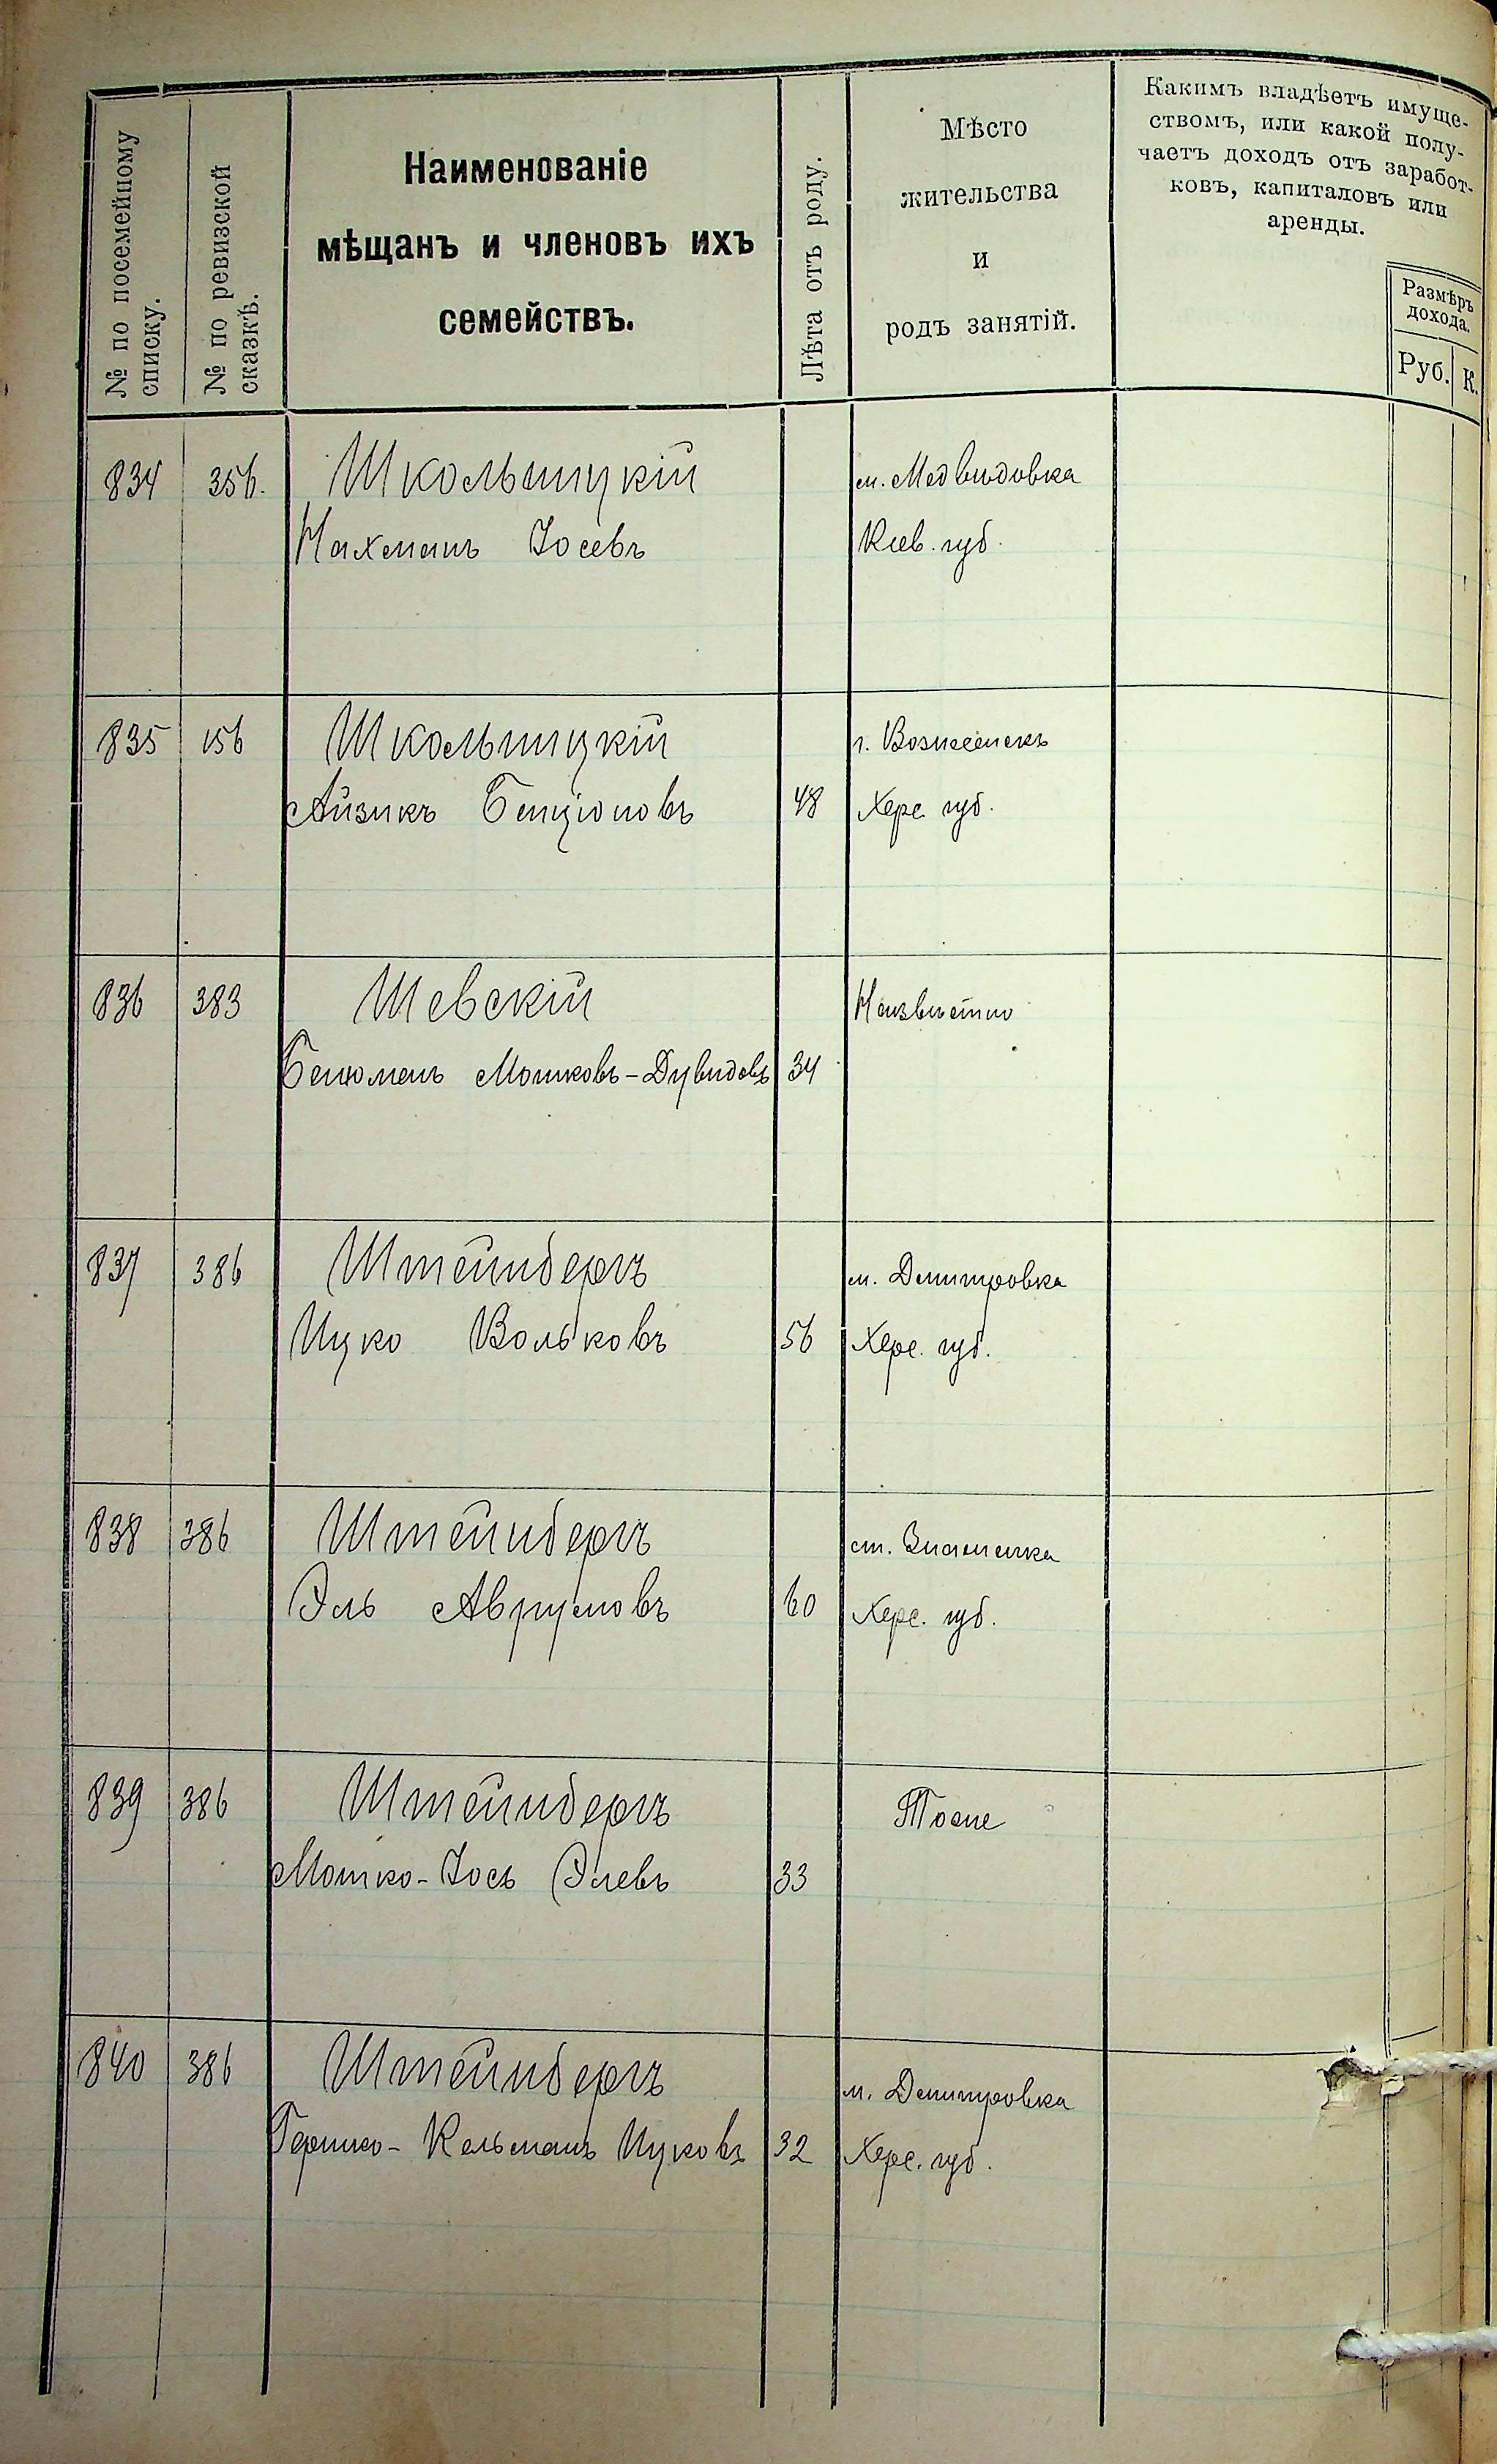 № по посемейному
списку.
№ по ревизской
сказкѣ.
Наименованіе
мѣщанъ и членовъ ихъ
семействъ.
Лѣта отъ роду.
Мѣсто
жительства
и
родъ занятій.
Какимъ владѣетъ имуще-
ствомъ, или какой полу-
чаетъ доходъ отъ заработ-
ковъ, капиталовъ или
аренды.
Размѣръ
дохода.
Руб. К.
834 356. Школьницкій м. Медвѣдовка
Нахманъ Іосевъ Кіев. губ.
835 156 Школьницкій г. Вознесенскъ
Айзикъ Бенціоновъ 48 Херс. губ.
836 383 Шевскій Неизвѣстно
Бенюменъ Мошковъ-Дувидовъ 34
837 386 Штейнбергъ м. Димитровка
Ицко Вольковъ 56 Херс. губ.
838 386 Штейнбергъ ст. Знаменка
Эль Аврумовъ 60 Херс. губ.
839 386 Штейнбергъ Тоже
Мошко-Іосъ Элевъ 33
840 386 Штейнбергъ м. Димитровка
Гершко-Кельманъ Ицковъ 32 Херс. губ.